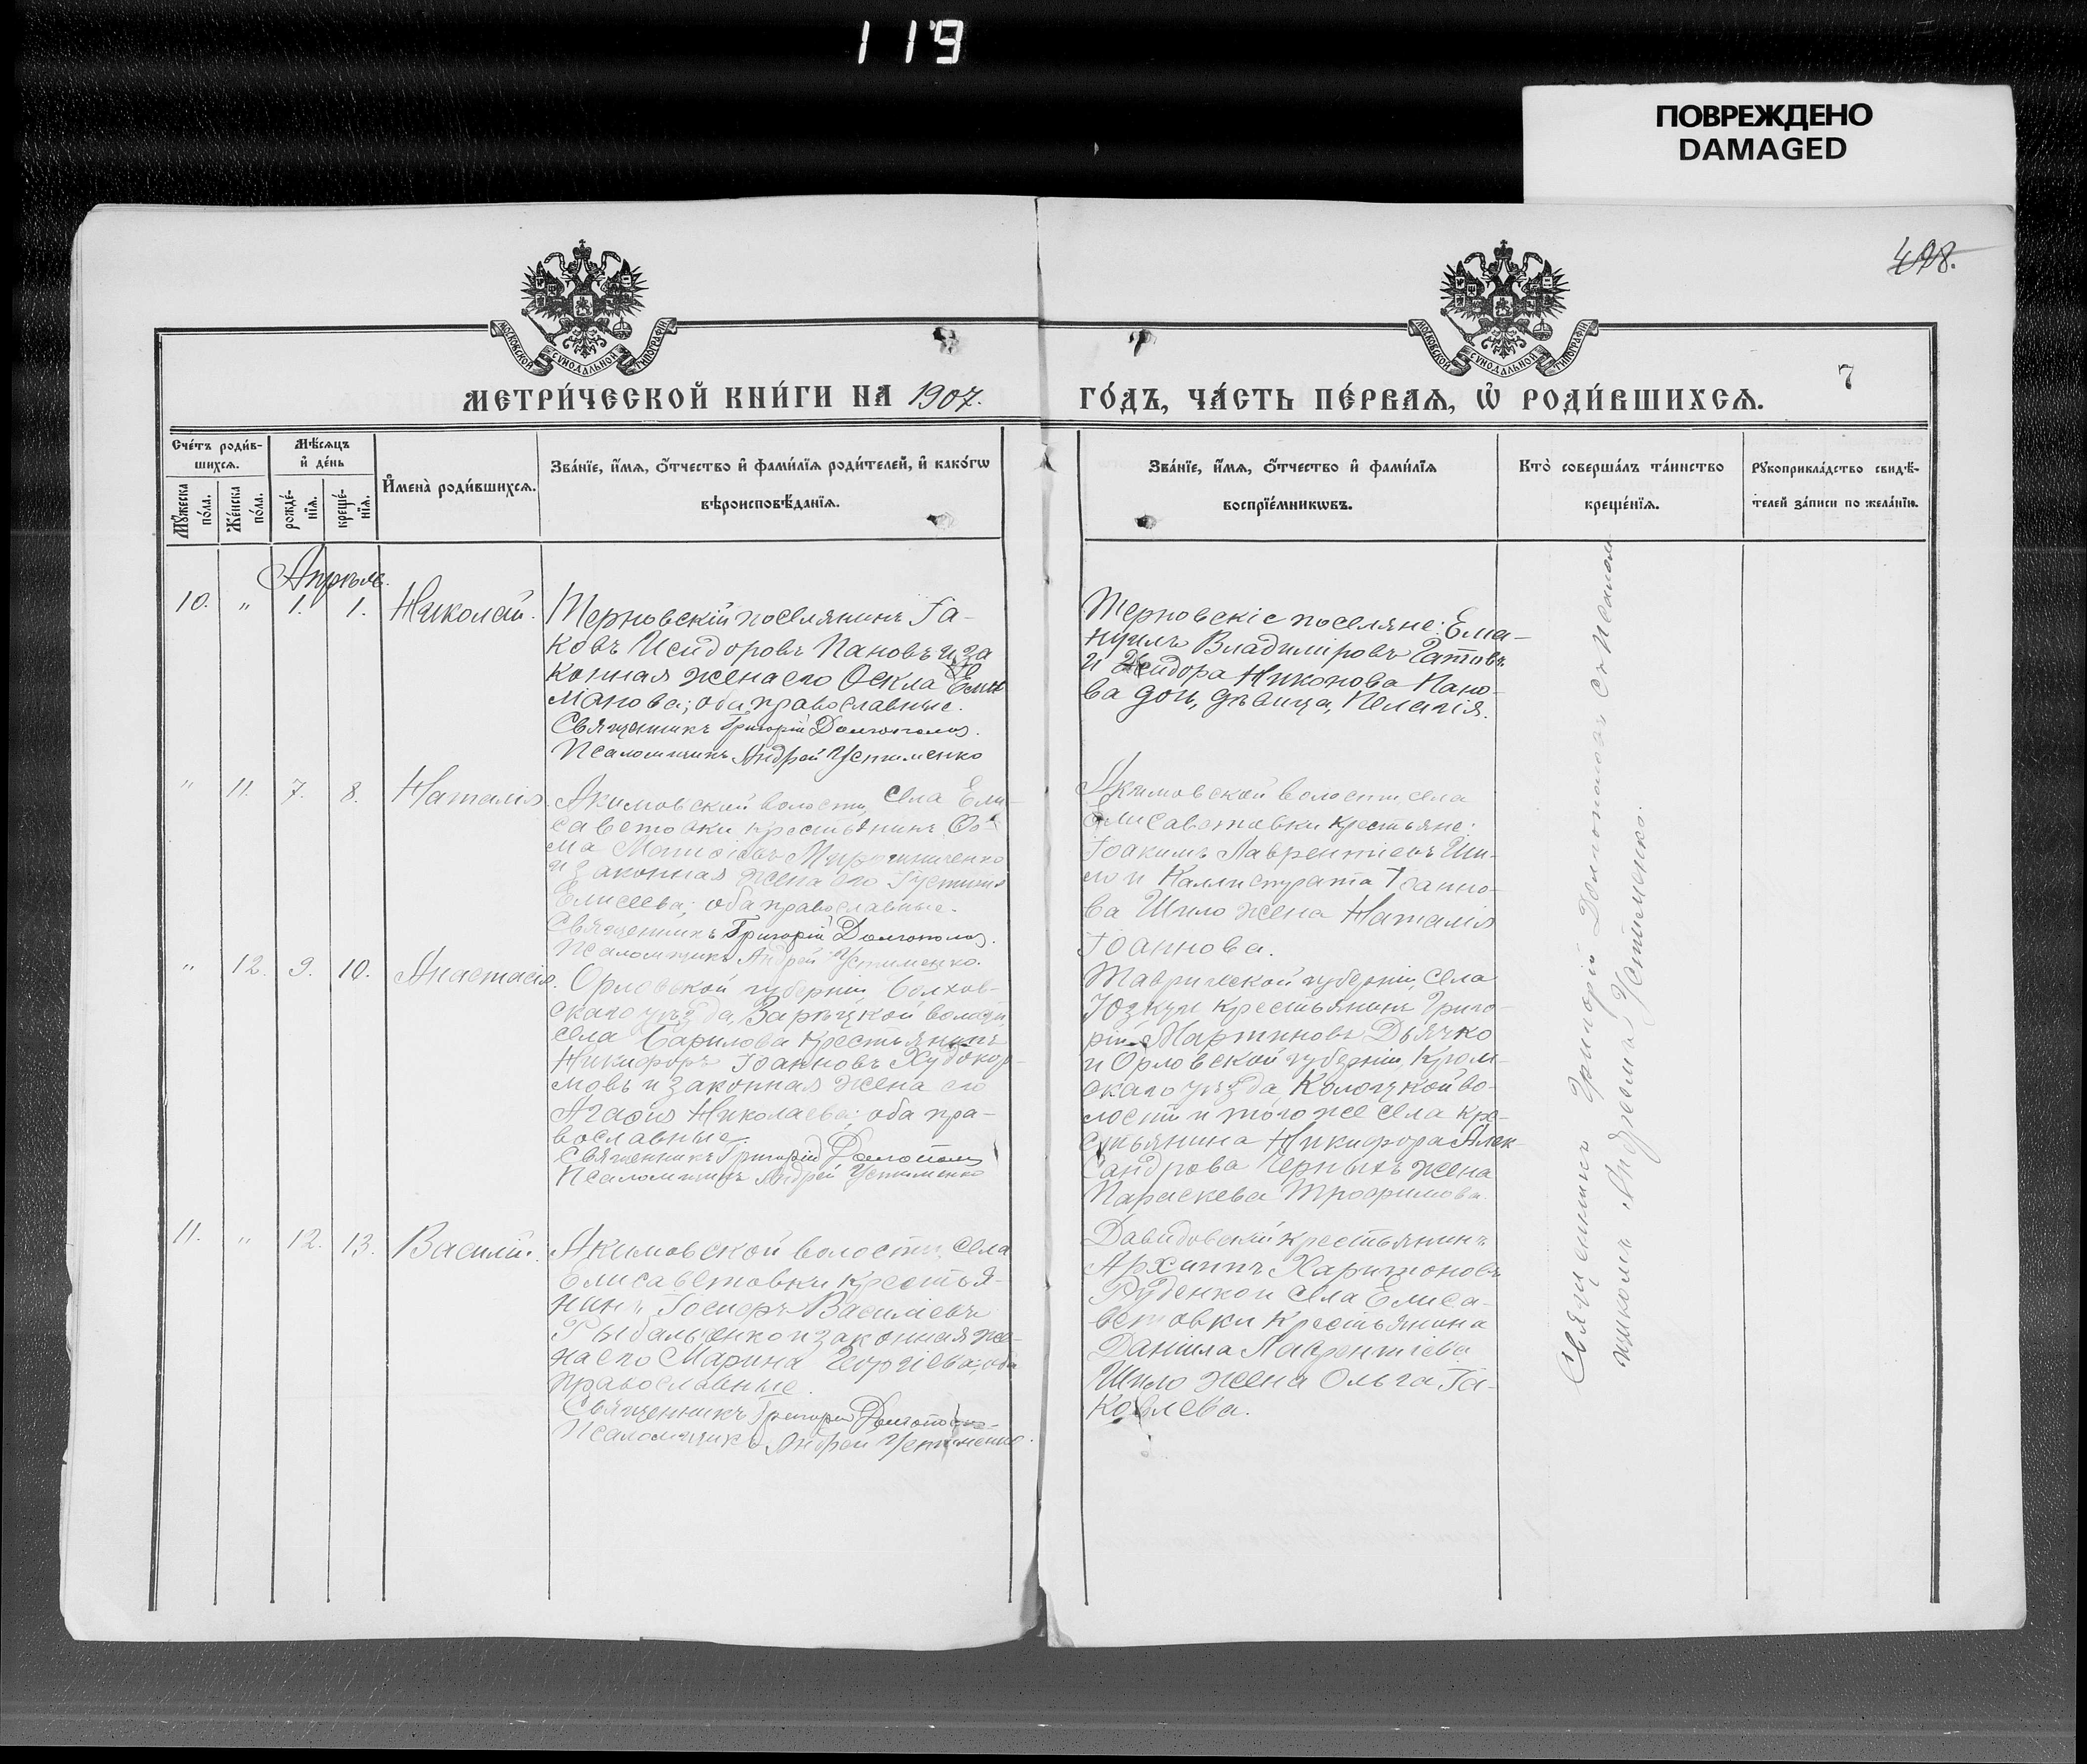 119
ПОВРЕЖДЕНО
DAMAGED
498.
МОСКОВСКОЙ СѴНОДАЛЬНОЙ ТИПОГРАФІИ
МОСКОВСКОЙ СѴНОДАЛЬНОЙ ТИПОГРАФІИ
7
МЕТРИ́ЧЕСКОЙ КНИ́ГИ НА 1907.
ГО́ДЪ, ЧА́СТЬ ПЕ́РВАѦ, Ѡ҆ РОДИ́ВШИХСѦ.
Сче́тъ роди́в-
шихсѧ.
Мѣ́сѧцъ
и҆ де́нь
Мꙋ́жеска по́ла.
Же́нска по́ла.
рожде́-
нїѧ.
креще́-
нїѧ.
И҆мена̀ роди́вшихсѧ.
Зва́нїе, и҆́мѧ, ѻ҆́тчество и҆ фами́лїѧ роди́телей, и҆ како́гѡ
вѣроисповѣ́данїѧ.
Зва́нїе, и҆́мѧ, ѻ҆́тчество и҆ фами́лїѧ
воспрїе́мникѡвъ.
Кто̀ соверша́лъ та́инство
креще́нїѧ.
Рꙋкоприкла́дство свидѣ́-
телей за́писи по жела́нїю.
Апрѣль.
10. „ 1. 1. Николай.
Терновскій поселянинъ Іа-
ковъ Исидоровъ Пановъ и за
конная жена его Ѳекла
манова; оба православные.
Священникъ Григорій Долгополов.
Псаломщикъ Андрей Устименко
Терновскіе поселяне: Ема-
нуилъ Владиміровъ
и Исидора Никонова Пано-
ва дочь, дѣвица, Пелагія.
„ 11. 7. 8. Наталія.
Акимовской волости, села Ели-
саветовки крестьянинъ Ѳо-
ма Матѳіевъ Мирошниченко
и законная жена его Іустина
Елисеева; оба православные.
Священникъ Григорій Долгополов.
Псаломщикъ Андрей Устименко.
Акимовской волости села
Елисаветовки крестьяне:
Іоакимъ Лаврентіевъ Ши-
ло и Каллистрата Іоанно-
ва Шило жена Наталія
Іоаннова.
„ 12. 9. 10. Анастасія.
Орловской губерніи Болхов-
скаго уѣзда, волости,
села крестьянинъ
Никифоръ Іоанновъ Худокор-
мовъ и законная жена его
Агаѳія Николаева; оба пра-
вославные.
Священникъ Григорій Долгополов
Псаломщикъ Андрей Устименко
Таврической губерніи, села
Юзкуи крестьянинъ Григо-
рій Мартиновъ Дьячко
и Орловской губерніи, Кром-
скаго уѣзда, во-
лости и того же села кре-
стьянина Никифора Алек-
сандрова Черныхъ жена
Параскева Трофимова.
11. „ 12. 13. Василій.
Акимовской волости, села
Елисаветовки крестья-
нинъ Іосифъ Василіевъ
Рыбальченко и законная же-
на его Марина Георгіева; оба
православные.
Священникъ Григорій Долгополов
Псаломщикъ Андрей Устименко.
Давидовскій крестьянинъ
Архиппъ Харитоновъ
Руденко и села Елиса-
ветовки крестьянина
Даніила Лаврентіева
Шило жена Ольга Іа-
ковлева.
Священникъ Григорій Долгополов съ псалом
щикомъ Андреемъ Устименко.